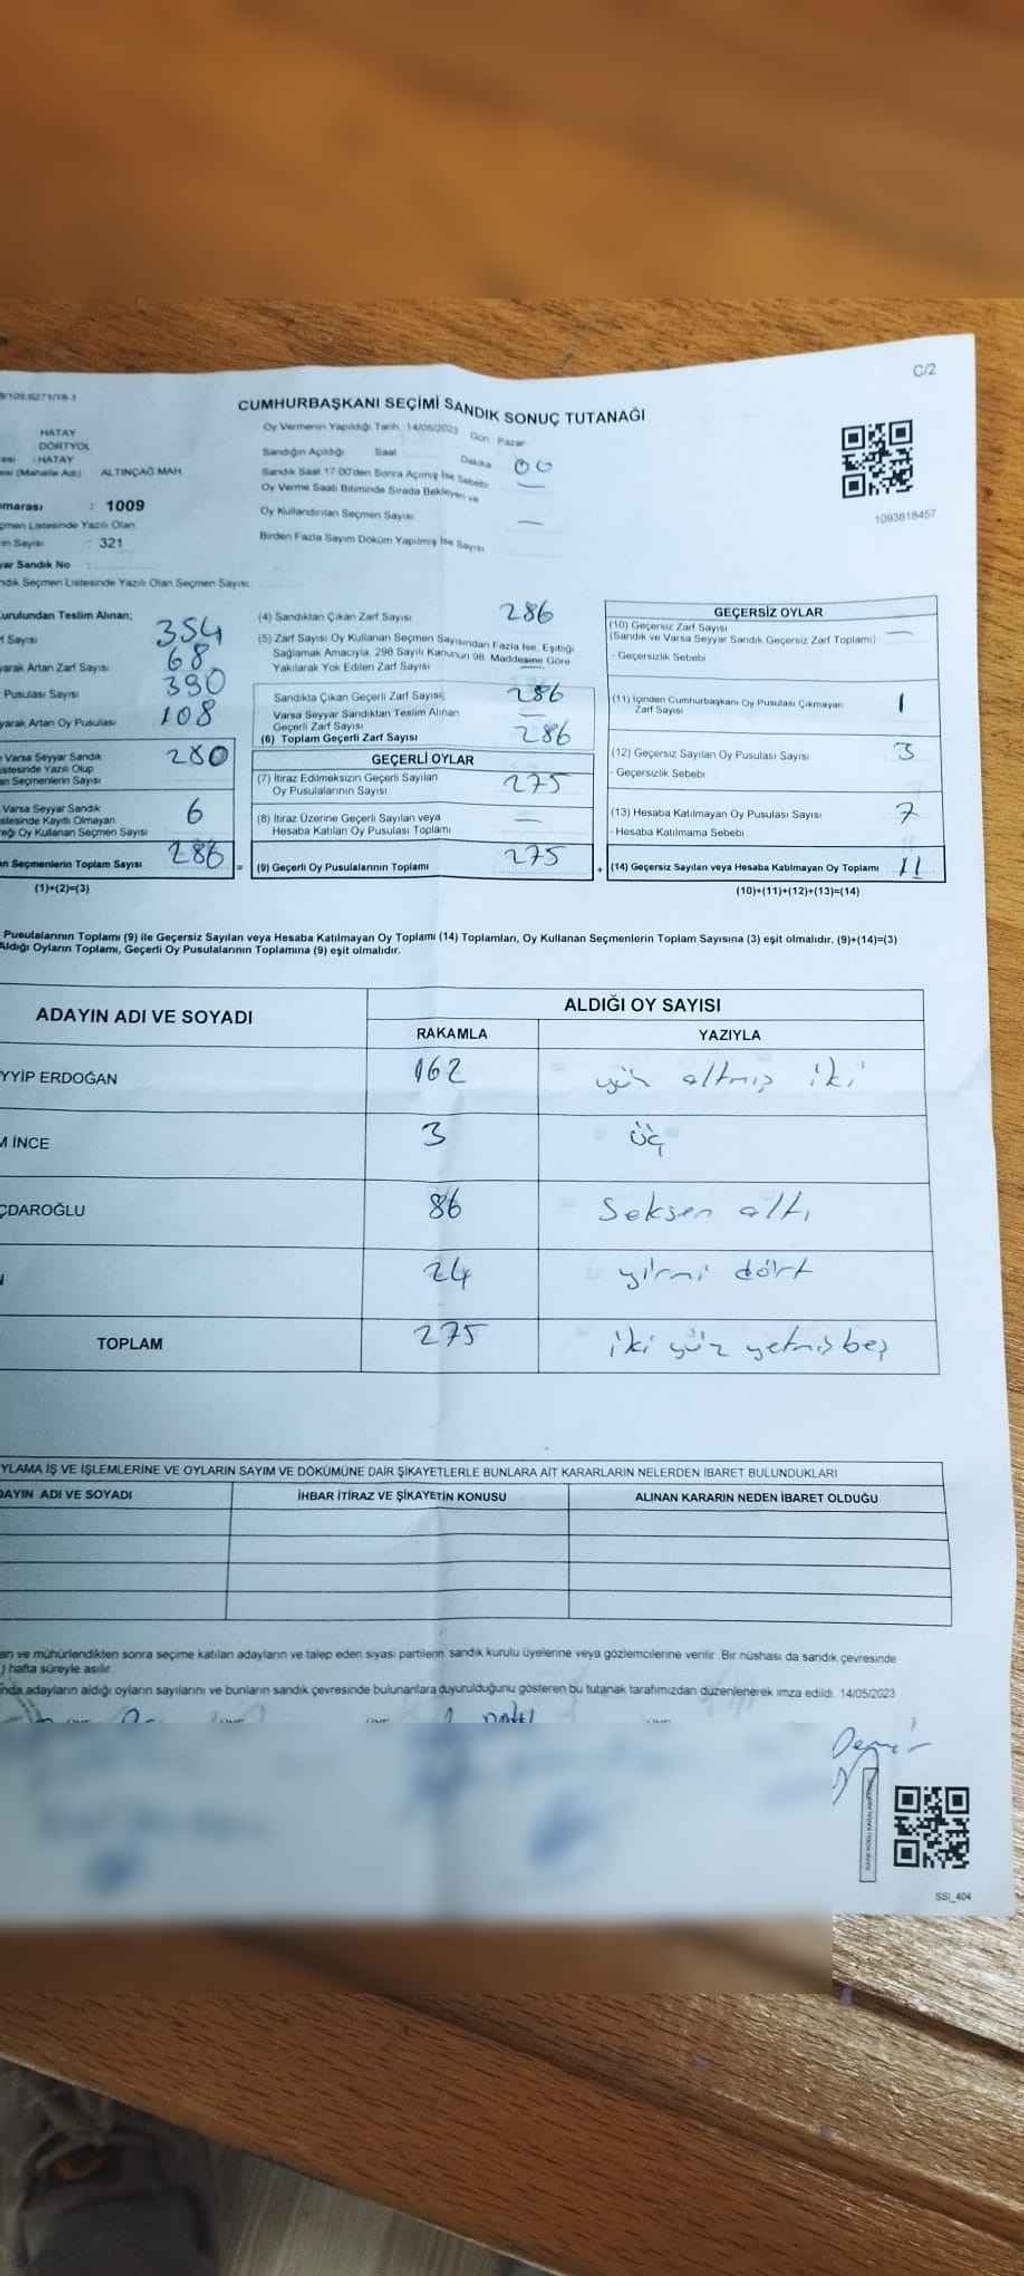 C/2
CUMHURBAŞKANI SEÇİMİ SANDIK SONUÇ TUTANAĞI
HATAY
DÖRTYOL
HATAY
(Mahalle Adı) ALTINÇAĞ MAH.
: 1009
Listesinde Yazılı Olan
Sayısı : 321
Sandık No
Seçmen Listesinde Yazılı Olan Seçmen Sayısı
Oy Vermenin Yapıldığı Tarih: 14/05/2023 Gün: Pazar
Sandığın Açıldığı Saat Dakika 00
Sandık Saat 17.00'den Sonra Açılmış İse Sebebi
Oy Verme Saati Bitiminde Sırada Bekleyen ve
Oy Kullandırılan Seçmen Sayısı
Birden Fazla Sayım Döküm Yapılmış İse Sayısı
1093818457
Teslim Alınan;
Sayısı 354
Artan Zarf Sayısı 68
Pusulası Sayısı 390
Artan Oy Pusulası 108
Varsa Seyyar Sandık 280
Yazılı Olup
Seçmenlerin Sayısı
Varsa Seyyar Sandık 6
Kayıtlı Olmayan
Oy Kullanan Seçmen Sayısı
Seçmenlerin Toplam Sayısı 286
(1)+(2)=(3)
(4) Sandıktan Çıkan Zarf Sayısı 286
(5) Zarf Sayısı Oy Kullanan Seçmen Sayısından Fazla İse, Eşitliği
Sağlamak Amacıyla, 298 Sayılı Kanunun 98. Maddesine Göre
Yakılarak Yok Edilen Zarf Sayısı
Sandıkta Çıkan Geçerli Zarf Sayısı 286
Varsa Seyyar Sandıktan Teslim Alınan
Geçerli Zarf Sayısı
(6) Toplam Geçerli Zarf Sayısı 286
GEÇERLİ OYLAR
(7) İtiraz Edilmeksizin Geçerli Sayılan
Oy Pusulalarının Sayısı 275
(8) İtiraz Üzerine Geçerli Sayılan veya
Hesaba Katılan Oy Pusulası Toplamı
= (9) Geçerli Oy Pusulalarının Toplamı 275
GEÇERSİZ OYLAR
(10) Geçersiz Zarf Sayısı
(Sandık ve Varsa Seyyar Sandık Geçersiz Zarf Toplamı)
- Geçersizlik Sebebi
(11) İçinden Cumhurbaşkanı Oy Pusulası Çıkmayan
Zarf Sayısı 1
(12) Geçersiz Sayılan Oy Pusulası Sayısı 3
- Geçersizlik Sebebi
(13) Hesaba Katılmayan Oy Pusulası Sayısı 7
- Hesaba Katılmama Sebebi
+ (14) Geçersiz Sayılan veya Hesaba Katılmayan Oy Toplamı 11
(10)+(11)+(12)+(13)=(14)
Pusulalarının Toplamı (9) ile Geçersiz Sayılan veya Hesaba Katılmayan Oy Toplamı (14) Toplamları, Oy Kullanan Seçmenlerin Toplam Sayısına (3) eşit olmalıdır. (9)+(14)=(3)
Aldığı Oyların Toplamı, Geçerli Oy Pusulalarının Toplamına (9) eşit olmalıdır.
ADAYIN ADI VE SOYADI ALDIĞI OY SAYISI
RAKAMLA YAZIYLA
YYİP ERDOĞAN 162 yüz altmış iki
M İNCE 3 üç
ÇDAROĞLU 86 Seksen altı
24 yirmi dört
TOPLAM 275 iki yüz yetmiş beş
YLAMA İŞ VE İŞLEMLERİNE VE OYLARIN SAYIM VE DÖKÜMÜNE DAİR ŞİKAYETLERLE BUNLARA AİT KARARLARIN NELERDEN İBARET BULUNDUKLARI
DAYIN ADI VE SOYADI İHBAR İTİRAZ VE ŞİKAYETİN KONUSU ALINAN KARARIN NEDEN İBARET OLDUĞU
ve mühürlendikten sonra seçime katılan adayların ve talep eden siyasi partilerin sandık kurulu üyelerine veya gözlemcilerine verilir. Bir nüshası da sandık çevresinde
) hafta süreyle asılır.
nda adayların aldığı oyların sayılarını ve bunların sandık çevresinde bulunanlara duyurulduğunu gösteren bu tutanak tarafımızdan düzenlenerek imza edildi. 14/05/2023
SSI_404